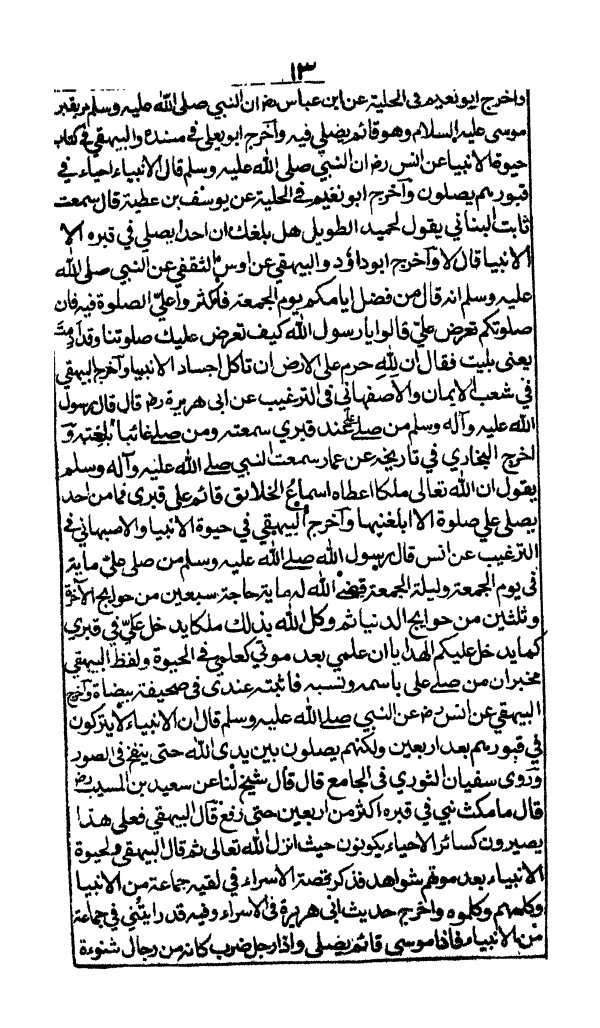 ١٣
واخرج ابو نعيم فى الحلية عن ابن عباس رض ان النبي صلى الله عليه وسلم مر بقبر
موسى عليه السلام وهو قائم يصلي فيه وآخرج ابو يعلى في مسنده والبيهقي في كتاب
حيوة الانبيا عن انس رض ان النبي صلى الله عليه وسلم قال الانبياء احياء في
قبورهم يصلون وآخرج ابو نعيم في الحلية عن يوسف بن عطية قال سمعت
ثابت البناني يقول لحميد الطويل هل بلغك ان احدا يصلي في قبره الا
الانبيا قال لا وآخرج ابو داؤد والبيهقي عن اوس الثقفي عن النبي صلى الله
عليه وسلم انه قال من افضل ايامكم يوم الجمعة فاكثروا علي الصلوة فيه فان
صلوتكم تعرض علي قالوا يا رسول الله كيف تعرض عليك صلوتنا وقد ارمت
يعنى بليت فقال ان لله حرم على الارض ان تاكل اجساد الانبيا وآخرج البيهقي
في شعب الايمان والاصفهاني فى الترغيب عن ابى هريرة رض قال قال رسول
الله عليه وآله وسلم من صلے علي عند قبري سمعته ومن صلے غائبا بلغته وآ
اخرج البخاري في تاريخه عن عمار سمعت النبي صلے الله عليه وآله وسلم
يقول ان الله تعالى ملكا اعطاه اسماع الخلائق قائم على قبرى فما من احد
يصلى علي صلوة الا ابلغنيها وآخرج البيهقي في حيوة الانبيا والاصبهاني فى
الترغيب عن انس قال رسول الله صلے الله عليه وسلم من صلى علي ماية
فى يوم الجمعة وليلة الجمعة قضے الله له ماية حاجة سبعين من حوايج الآخرة
وثلثين من حوايج الدنيا ثم وكل الله بذلك ملكا يدخل علي في قبري
كما يدخل عليكم الهدايا ان علمي بعد موتي كعلمي فى الحيوة ولفظ البيهقي
مخبران من صلے علي باسمه ونسبه فاثبته عندى فى صحيفة بيضاة وآخرج
البيهقي عن انس رض عن النبي صلے الله عليه وسلم قال ان الانبياء لا يتركون
في قبورهم بعد اربعين ولكنهم يصلون بين يدى الله حتى ينفخ فى الصور
وروى سفيان الثوري فى الجامع قال قال شيخ لنا عن سعيد بن المسيب رض
قال ما مكث نبي في قبره اكثر من اربعين حتى رفع قال البيهقي فعلى هذا
يصيرون كسائر الاحياء يكونون حيث انزل الله تعالى ثم قال البيهقي ولحيوة
الانبياء بعد موتهم شواهد فذكر قصة الاسراء في لقيه جماعة من الانبيا
وكلمهم وكلموه واخرج حديث ابى هريرة فى الاسراء وفيه قد رايتني في جماعة
من الانبياء فاذا موسى قائم يصلي واذا رجل ضرب كانه من رجال شنوءة